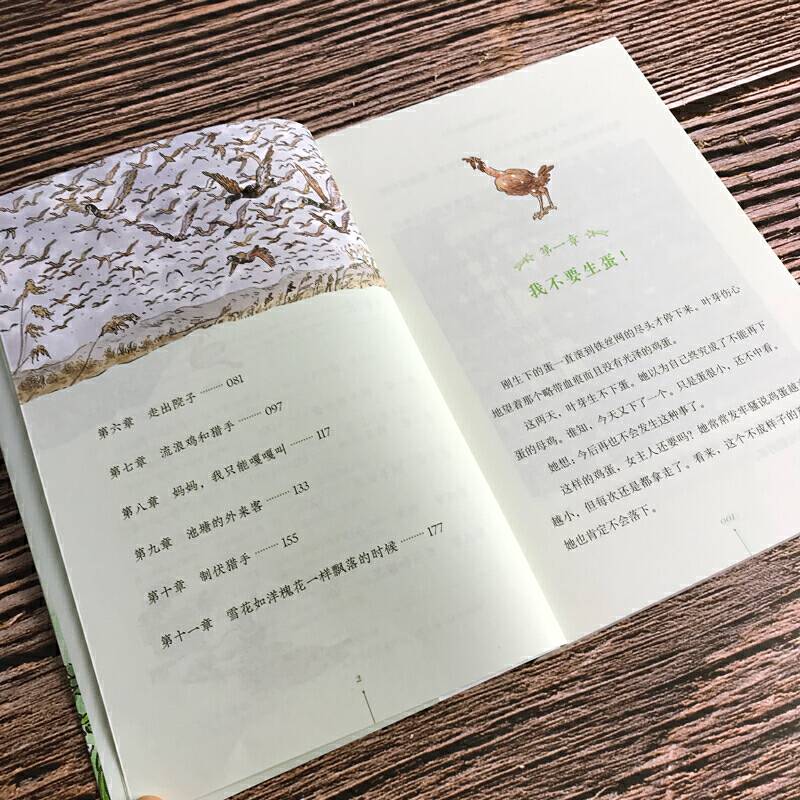 第六章 走出院子 ……… 081
第七章 流浪鸡和猎手 ……… 097
第八章 妈妈，我只能嘎嘎叫 ……… 117
第九章 池塘的外来客 ……… 133
第十章 制伏猎手 ……… 155
第十一章 雪花如洋槐花一样飘落的时候 ……… 177
2
第一章
我不要生蛋！
刚生下的蛋一直滚到铁丝网的尽头才停下来。叶芽伤心
地望着那个略带血痕而且没有光泽的鸡蛋。
这两天，叶芽生不下蛋。她以为自己终究成了不能再下
蛋的母鸡。谁知，今天又下了一个。只是蛋很小，还不中看。
她想，今后再也不会发生这种事了。
这样的鸡蛋，女主人还要吗？她常常发牢骚说鸡蛋越
越小，但每次还是都拿走了。看来，这个不成样子的
她也肯定不会落下。
001